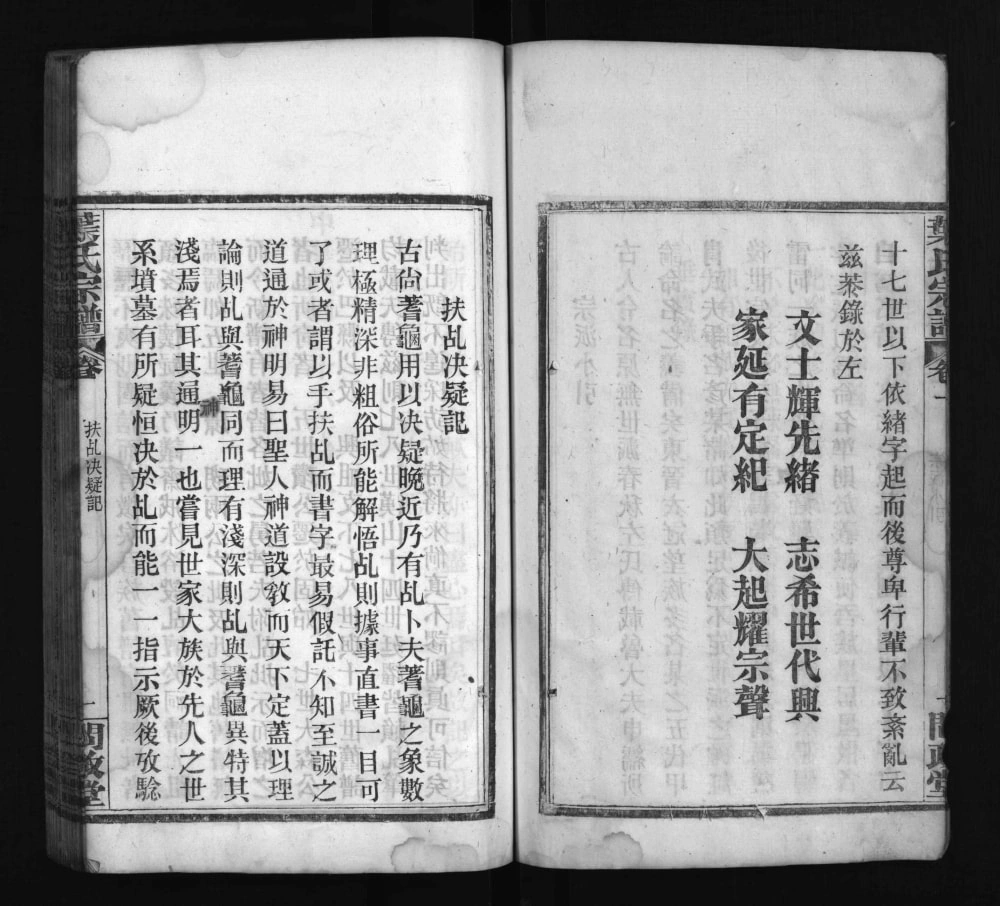 葉氏宗譜
卷一
一
問政堂
十七世以下依緒字起而後尊卑行輩不致紊亂云
兹恭錄於左
文士輝先緒 志希世代興
家延有定紀 大起耀宗聲
扶乩决疑記
古尚蓍龜用以决疑晚近乃有乩卜夫蓍龜之象數
理極精深非粗俗所能解悟乩則據事直書一目可
了或者謂以手扶乩而書字最易假託不知至誠之
道通於神明易曰聖人神道設敎而天下定蓋以理
論則乩與蓍龜同而理有淺深則乩與蓍龜異特其
淺焉者耳其通神明一也嘗見世家大族於先人之世
系墳墓有所疑恒决於乩而能一一指示厥後攷騐
葉氏宗譜
卷
扶乩决疑記
一
問政堂